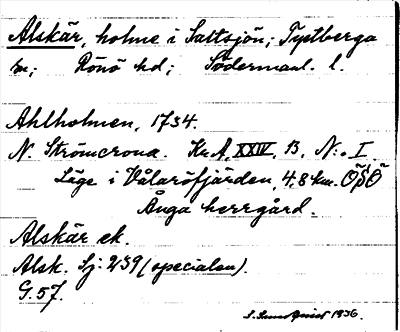 Alskär, holme i Saltsjön; Tystberga
sn; Rönö hd; Södermanl. l.
Ahlholmen, 1734.
N. Strömcrona. Kr.A, XXIV, 13, N:o I
Läge i Vålaröfjärden, 4,8 km. ÖSÖ
Ånga herrgård.
Alskär ek.
Alsk. Sj: 239 (specialen).
G. 57.
1936.